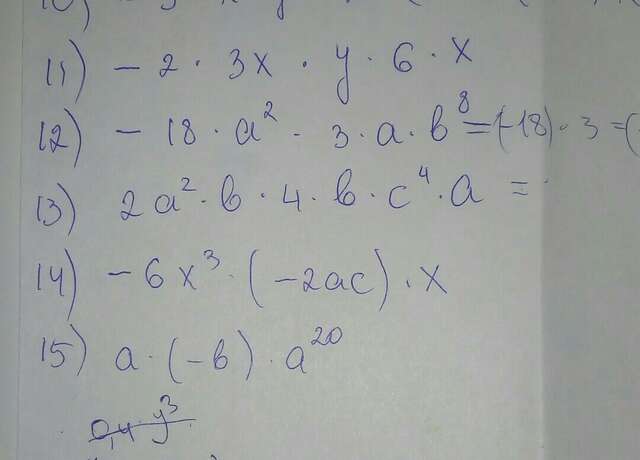 11) - 2 · 3x · y · 6 · x
12) - 18 · a² · 3 · a · b⁸ = (-18) · 3 = (
13) 2a² · b · 4 · b · c⁴ · a =
14) - 6x³ · (-2ac) · x
15) a · (-b) · a²⁰
0,4 · y³